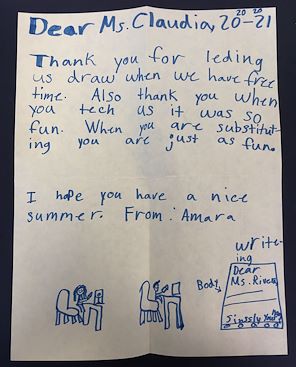 Dear Ms. Claudia, 2020-2021
Thank you for leding
us draw when we have free
time. Also thank you when
you tech us it was so
fun. When you are substitut-
ing you are just as fun.
I hope you have a nice
summer. From: Amara
write-
ing
Body
Dear
Ms. Rivera